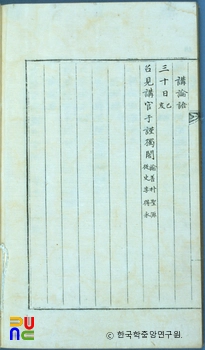 講論語
三十日己亥
召見講官于謹獨閤
PUNC
© 한국학중앙연구원